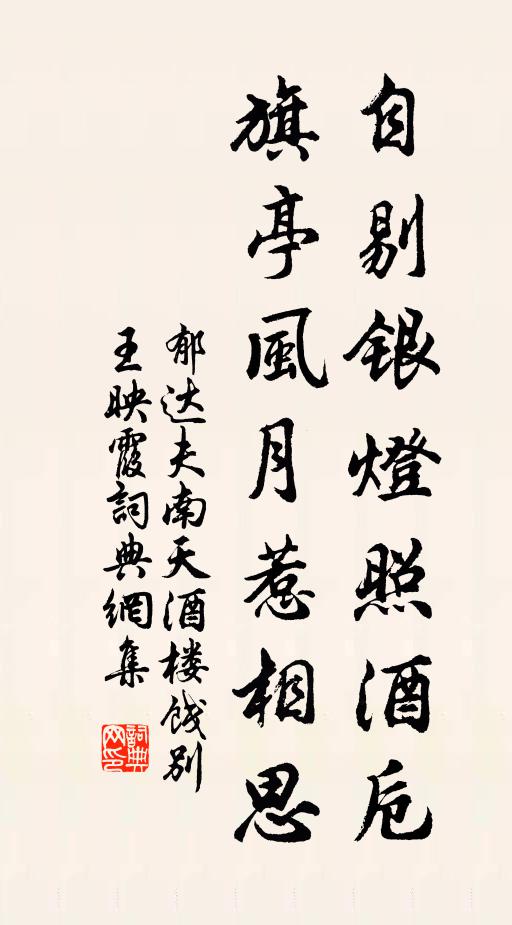 自剔銀燈照酒卮
旗亭風月惹相思
郁达夫南天酒楼饯别
王映霞詞典網集
詞典网印